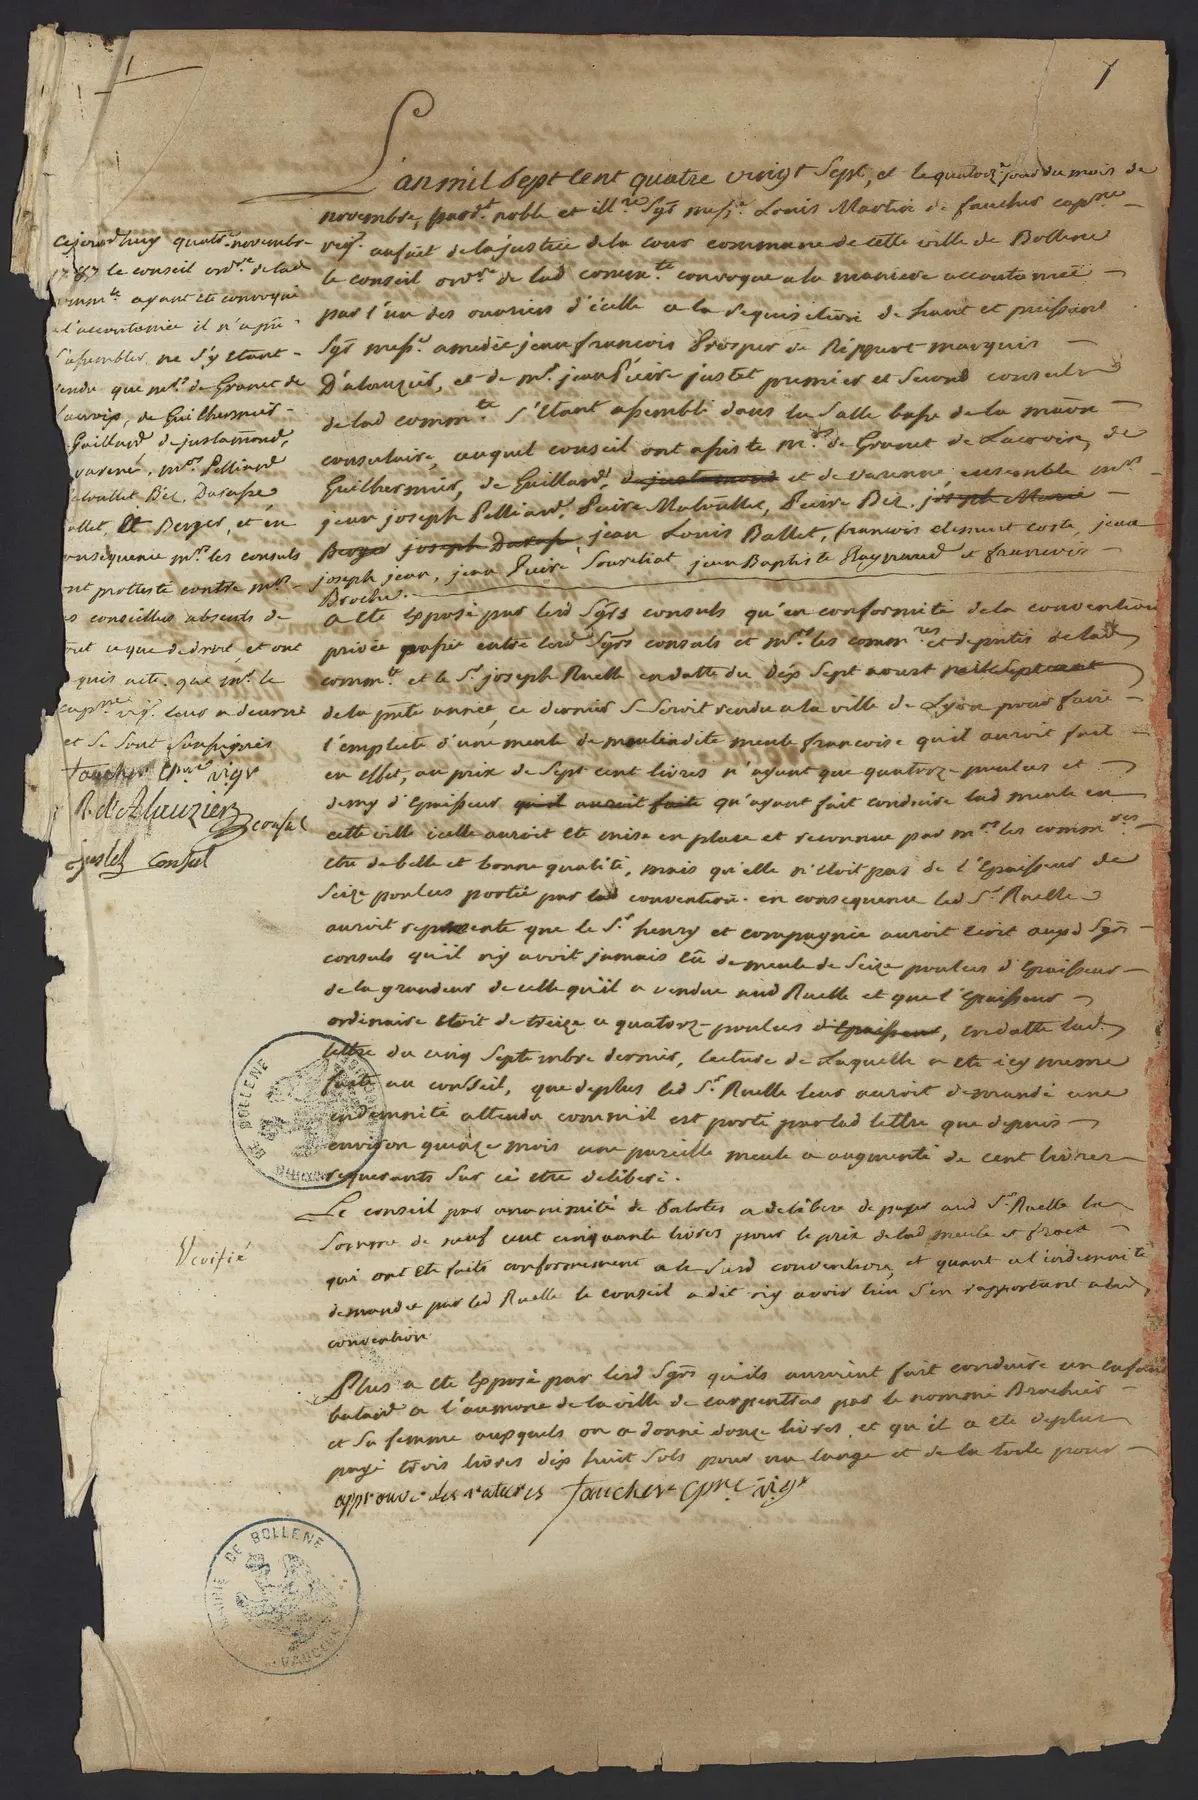 1
1
L'an mil sept cent quatre vingt sept, et le quatorz.e jour du mois de
novembre, pard.t noble et ill.re sgr mess.e Louis Martin de faucher cap.ne
vig.r au fait de la justice de la cour commune de cette ville de Bollene
le conseil ord.re de lad comm.te convoqué a la maniere accoutumée
par l'un des ouvriers d'icelle a la requisition de haut et puissant
sgr mess.e amedée jean francois Prosper de Rippert marquis
D'alauzier, et de m.r jean Pierre justet premier et second consuls
de lad comm.te s'étant assemblé dans la salle basse de la maison
consulaire, auquel conseil ont assisté m.rs de Granet de Lacroix, de
Guilhermier, de Gaillard, de justamond et de varenne, ensemble m.rs
jean joseph Pelliard, Pierre Malvallet, Pierre Bès, joseph Marie
Berger joseph Darasse, jean Louis Ballet, francois clement coste, jean
joseph jean, jean Pierre Soureliat jean Baptiste Raynaud et francois
Broche.
a été exposé par lesd sgrs consuls qu'en conformité de la convention
privée passée entre lesd sgrs consuls et m.rs les comm.res et deputés de lad
comm.te et le s.r joseph Ruelle en datte du dix sept aoust
de la p.nte année, ce dernier se seroit rendu a la ville de Lyon pour faire
l'emplette d'une meule de moulin dite meule francoise qu'il auroit fait
en effet, au prix de sept cent livres n'ayant que quatorz.e poulces et
demy d'epaisseur qu'il auroit faite qu'ayant fait conduire lad meule en
cette ville icelle auroit été mise en place et reconnue par m.rs les comm.res
etre de belle et bonne qualité, mais qu'elle n'étoit pas de l'epaisseur de
seize poulces portée par lad convention. en consequence led s.r Ruelle
auroit representé que le s.r henry et compagnie auroit écrit auxd sgrs
consuls qu'il n'y avoit jamais eu de meule de seize poulces d'epaisseur
de la grandeur de celle qu'il a vendue aud Ruelle et que l'epaisseur
ordinaire etoit de treize a quatorz.e poulces d'epaisseur, en datte lad.
lettre du cinq septembre dernier, lecture de Laquelle a été icy meme
faite au conseil, que de plus led s.r Ruelle leur auroit demandé une
indemnité attendu comm'il est porté par lad lettre que depuis
environ quinze mois une pareille meule a augmenté de cent livres
requerants sur ce etre deliberé.
Le conseil par unanimité de balotes a deliberé de payer aud s.r Ruelle la
somme de neuf cent cinquante livres pour le prix de lad meule et fraix
qui ont été faits conformement a la susd convention, et quant a l'indemnité
demandée par led Ruelle le conseil a dit n'y avoir lieu s'en rapportant a lad
convention.
Plus a été exposé par lesd sgrs qu'ils auroient fait conduire un enfant
batard a l'aumone de la ville de carpentras par le nommé Brachier
et sa femme auxquels on a donné douze livres, et qu'il a été de plus
payé trois livres dix huit sols pour un lange et de la toile pour
approuvé les ratures faucher cpne vigr
cejourd'huy quatorz.e novembre
1787 le conseil ord.re de lad
comm.te ayant été convoqué
a l'accoutumée il n'a pu
s'assembler, ne s'y etant
rendu que m.rs de Granet de
Lacroix, de Guilhermier
Gaillard de justamond,
varenne, m.rs Pelliard
Malvallet Bès, Darasse
Ballet, et Berger, et en
consequence m.rs les consuls
ont protesté contre m.rs
les conseillers absents de
tout ce que de droit, et ont
requis acte que m.r le
cap.ne vig.r leur a accordé
et se sont soussignés
faucher cpne vigr
R. d'Alauzier consul
justet consul
Verifié
MAIRIE DE BOLLENE
MAIRIE DE BOLLENE
VAUCLUSE